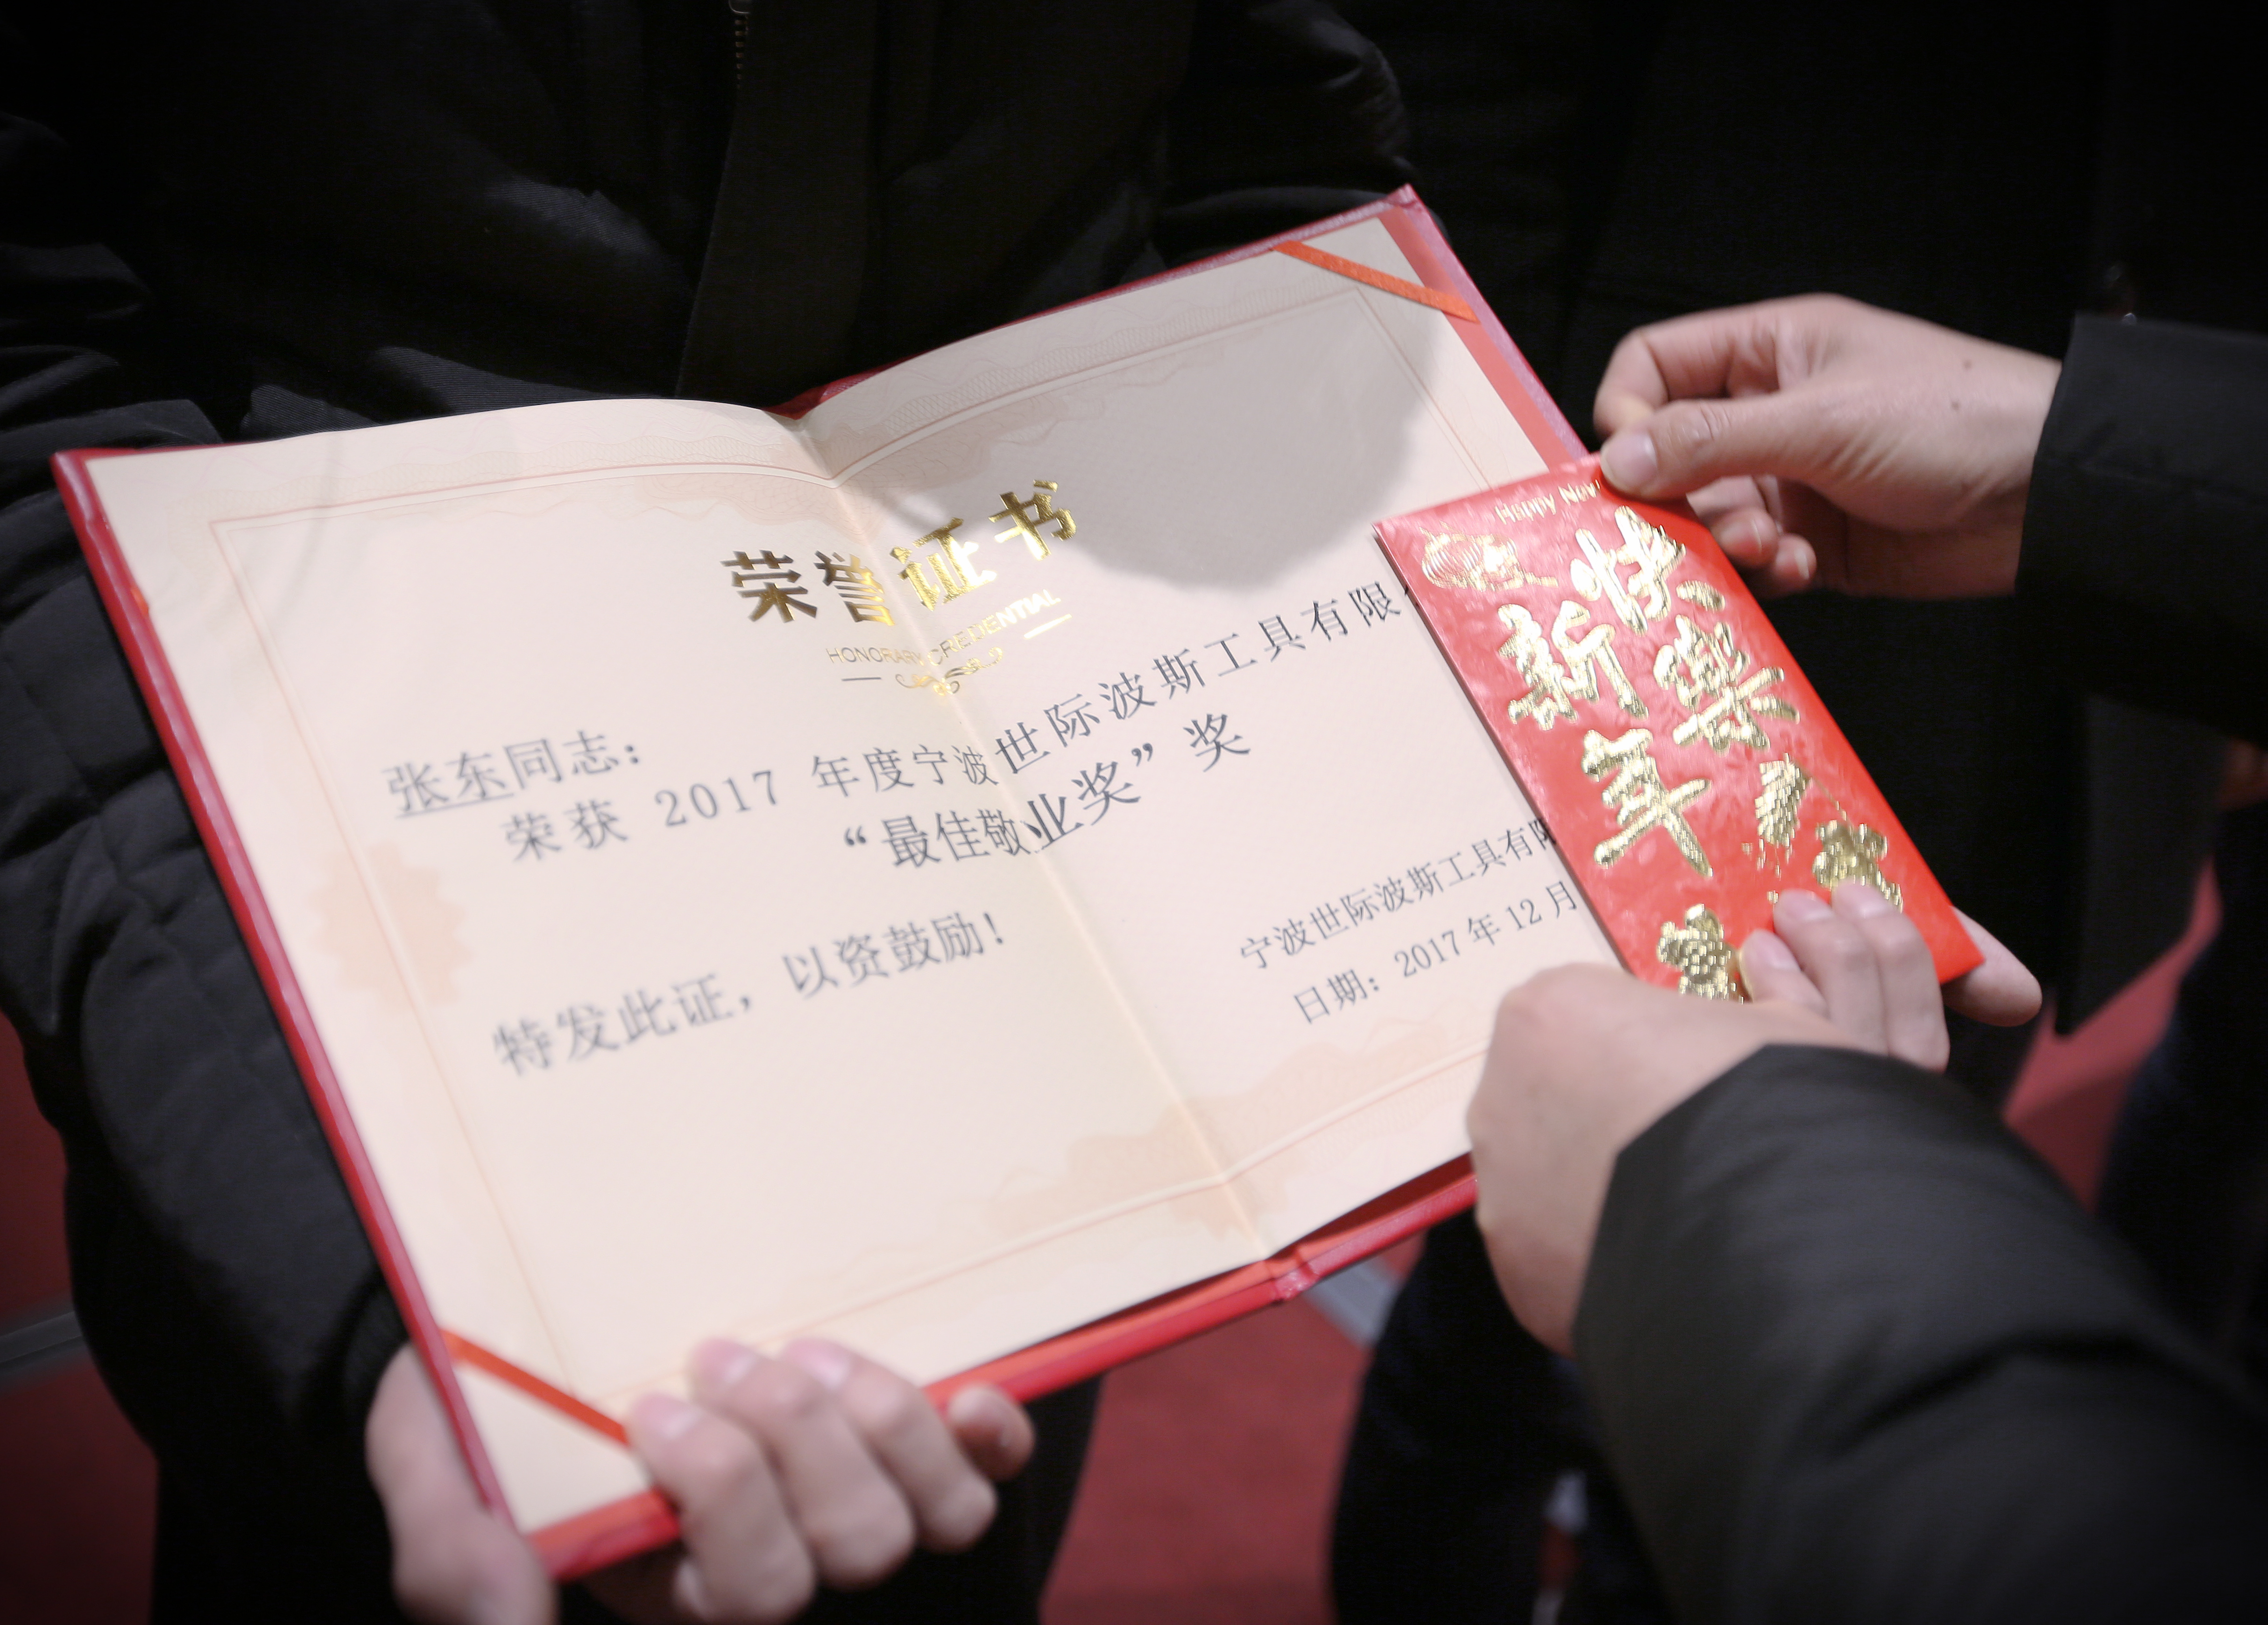 荣誉证书
HONORARY CREDENTIAL
张东同志：
荣获 2017 年度宁波世际波斯工具有限
“最佳敬业奖”奖
特发此证，以资鼓励！
宁波世际波斯工具有限
日期：2017年12月
Happy New
新年
快樂